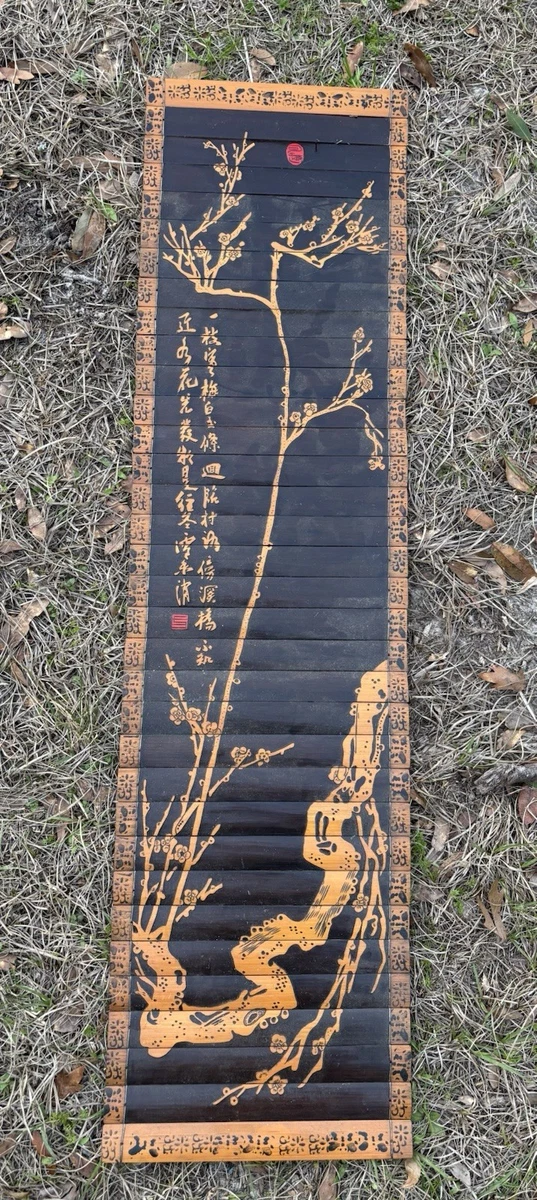 一枝寒梅白玉條迴臨村路傍溪橋不知
近水花先發疑是經冬雪未消